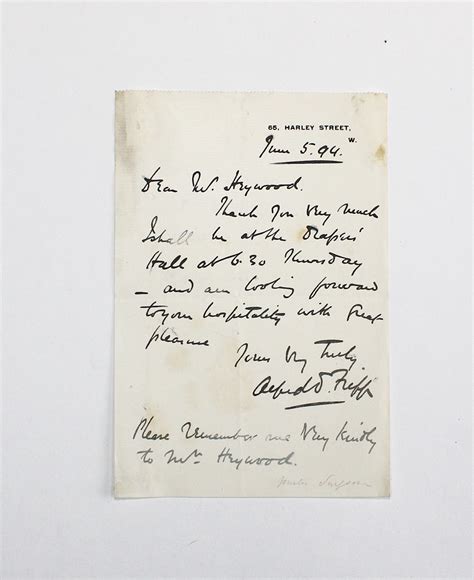 65, HARLEY STREET,
W.
June 5. 94.
Dear Mr. Heywood.
Thank you very much
I shall be at the Drapers'
Hall at 6.30 Thursday
– and am looking forward
to your hospitality with great
pleasure
Yours Very Truly
Alfred D. Fripp
Please remember me very kindly
to Mrs Heywood.